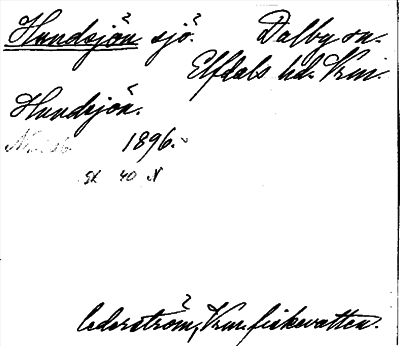 Hundsjön sjö. Dalby sn.
Elfdals hd. Vrm.
Hundsjön.
1896.
gk 40 N
Cederström, Vrm. fiskevatten.